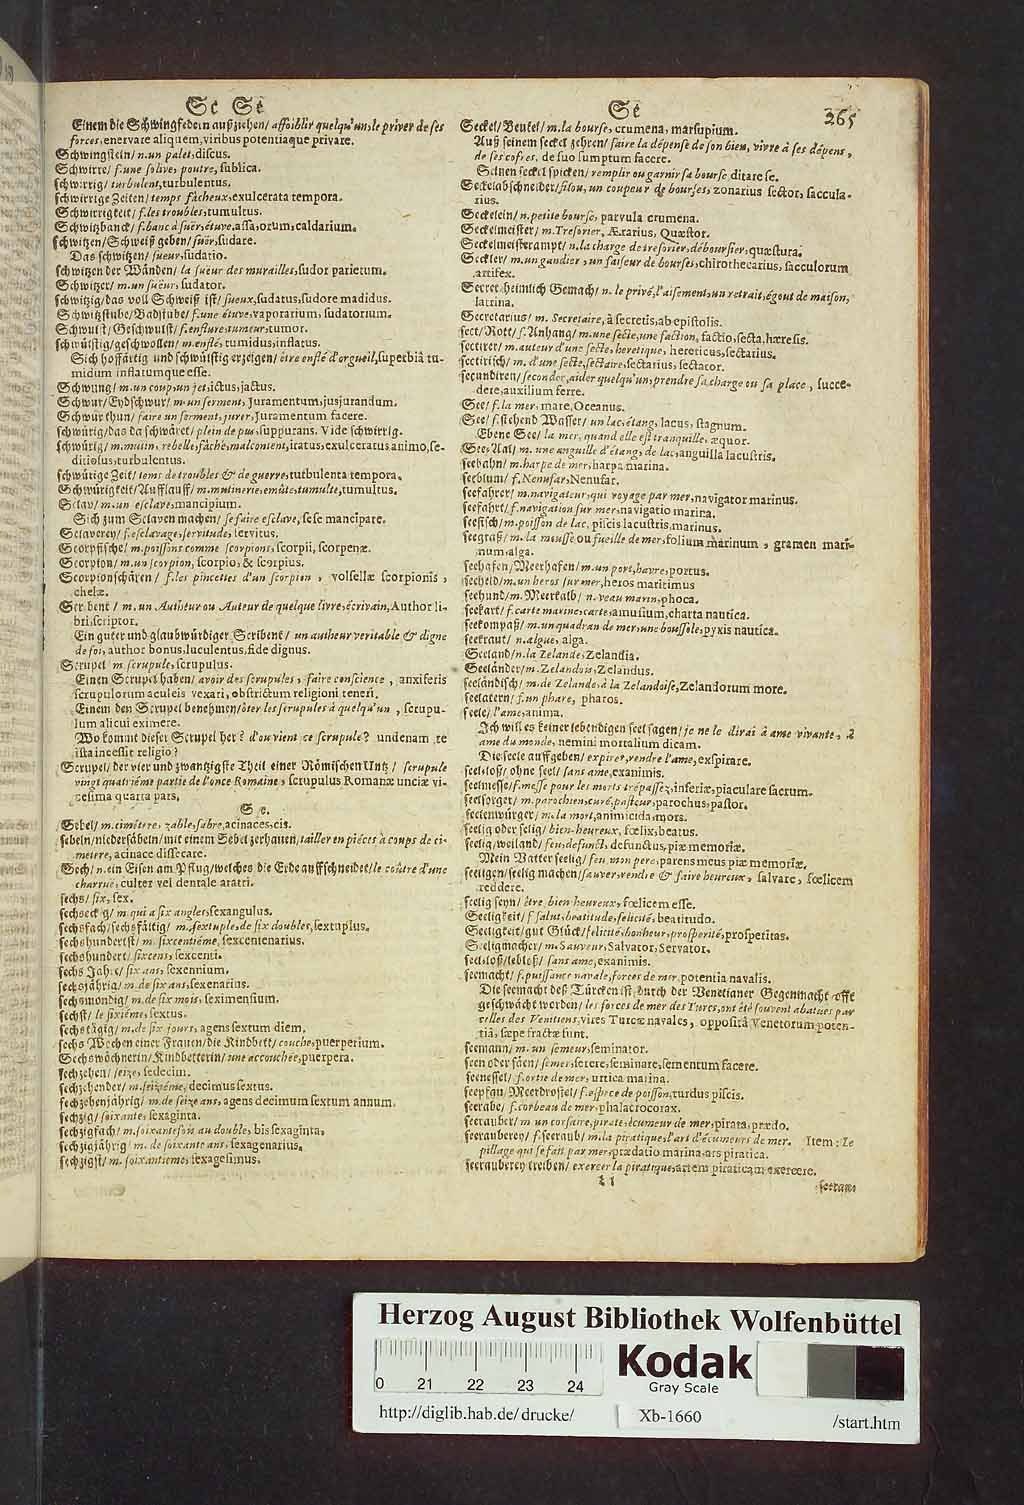 Sc Se
Einem die Schwingfedern außziehen/ affoiblir quelqu'un, le priver de ses
forces, enervare aliquem, viribus potentiaque privare.
Schwingstein/ n. un palet, discus.
Schwirre/ f. une solive, poutre, sublica.
schwirrig/ turbulent, turbulentus.
schwirrige Zeiten/ temps fâcheux, exulcerata tempora.
Schwirrigkeit/ f. les troubles, tumultus.
Schwitzbanck/ f. banc à suër, étuve, assa, orum, caldarium.
schwitzen/ Schweiß geben/ suër, sudare.
Das schwitzen/ sueur, sudatio.
schwitzen der Wänden/ la sueur des murailles, sudor parietum.
Schwitzer/ m. un sueur, sudator.
schwitzig/ das voll Schweiß ist/ sueux, sudatus, sudore madidus.
Schwitzstube/ Badstube/ f. une étuve, vaporarium, sudatorium.
Schwulst/ Geschwulst/ f. enflure, tumeur, tumor.
schwülstig/ geschwollen/ m. enflé, tumidus, inflatus.
Sich hoffärtig und schwülstig erzeigen/ être enflé d'orgueil, superbiâ tu-
midum inflatumque esse.
Schwung/ m. un coup, un jet, ictus, jactus.
Schwur/ Eydschwur/ m. un serment, juramentum, jusjurandum.
Schwür thun/ faire un serment, jurer, juramentum facere.
schwürig/ das da schwäret/ plein de pus, suppurans. Vide schwirrig.
schwürig/ m. mutin, rebelle, fâché, malcontent, iratus, exulceratus animo, se-
ditiosus, turbulentus.
schwürige Zeit/ tems de troubles & de guerre, turbulenta tempora.
Schwürigkeit/ Aufflauff/ m. mutinerie, emûte, tumulte, tumultus.
Sclav/ m. un esclave, mancipium.
Sich zum Sclaven machen/ se faire esclave, sese mancipare.
Sclaverey/ f. esclavage, servitude, servitus.
Scorpfische/ m. poissons comme scorpions, scorpii, scorpenæ.
Scorpion/ m. un scorpion, scorpio, & scorpius.
Scorpionschären/ f. les pincettes d'un scorpion, volsellæ scorpionis,
chelæ.
Scribent/ m. un Autheur ou Auteur de quelque livre, écrivain, Author li-
bri, scriptor.
Ein guter und glaubwürdiger Scribent/ un autheur veritable & digne
de foi, author bonus, luculentus, fide dignus.
Scrupel m. scrupule, scrupulus.
Einen Scrupel haben/ avoir des scrupules, faire conscience, anxiferis
scrupulorum aculeis vexari, obstrictum religioni teneri.
Einem den Scrupel benehmen/ ôter les scrupules à quelqu'un, scrupu-
lum alicui eximere.
Wo kommt dieser Scrupel her? d'ou vient ce scrupule? undenam te
ista incessit religio?
Scrupel/ der vier und zwantzigste Theil einer Römischen Untz/ scrupule
vingt quatriéme partie de l'once Romaine, scrupulus Romanæ unciæ vi-
cesima quarta pars.
Se.
Sebel/ m. cimeterre, zable, sabre, acinaces, cis.
sebeln/ niedersäbeln/ mit einem Sebel zerhauen/ tailler en piéces à coups de ci-
meterre, acinace dissecare.
Sech/ n. ein Eisen am Pflug/ welches die Erde auffschneidet/ le coûtre d'une
charruë, culter vel dentale aratri.
sechs/ six, sex.
sechseckig/ m. qui a six angles, sexangulus.
sechsfach/ sechsfältig/ m. sextuple, de six doubles, sextuplus.
sechshundertst/ m. sixcentiéme, sexcentenarius.
sechshundert/ sixcens, sexcenti.
sechs Jahre/ six ans, sexennium.
sechsjährig/ m. de six ans, sexenarius.
sechsmondig/ m. de six mois, seximensium.
sechst/ le sixiéme, sextus.
sechstägig/ m. de six jours, agens sextum diem.
sechs Wochen einer Frauen/ die Kindbett/ couche, puerperium.
Sechswöchnerin/ Kindbetterin/ une accouchée, puerpera.
sechzehen/ seize, sedecim.
sechzehender/ m. seiziéme, decimus sextus.
sechzehenjährig/ m. de seize ans, agens decimum sextum annum.
sechzig/ soixante, sexaginta.
sechzigfach/ m. soixantefois au double, bis sexaginta.
sechzigjährig/ m. de soixante ans, sexagenarius.
sechzigst/ m. soixantieme, sexagesimus.
Se
265
Seckel/ Beutel/ m. la bourse, crumena, marsupium.
Auß seinem seckel zehren/ faire la dépense de son bien, vivre à ses dépens,
de ses cofres, de suo sumptum facere.
Seinen seckel spicken/ remplir ou garnir sa bourse, ditare se.
Seckelabschneider/ filou, un coupeur de bourses, zonarius sector, saccula-
rius.
Seckelein/ n. petite bourse, parvula crumena.
Seckelmeister/ m. Tresorier, Ærarius, Quæstor.
Seckelmeisterampt/ n. la charge de tresorier, déboursier, quæstura.
Seckler/ m. un gandier, un faiseur de bourses, chirothecarius, sacculorum
artifex.
Secret, heimlich Gemach/ n. le privé, l'aisement, un retrait, égout de maison,
latrina.
Secretarius/ m. Secretaire, à secretis, ab epistolis.
sect/ Rott/ f. Anhang/ m. une secte, une faction, factio, secta, hæresis.
sectirer/ m. auteur d'une secte, heretique, hereticus, sectarius.
sectirisch/ m. d'une secte, sectaire, sectarius, sectator.
secundiren/ seconder, aider quelqu'un, prendre sa charge ou sa place, succe-
dere, auxilium ferre.
See/ f. la mer, mare, Oceanus.
See/ f. stehend Wasser/ un lac, étang, lacus, stagnum.
Ebene See/ la mer, quand elle est tranquille, æquor.
See-Aal/ m. une anguille d'étang, de lac, anguilla lacustris.
seehahn/ m. harpe de mer, harpa marina.
seeblum/ f. Nenufar, Nenufar.
seefahrer/ m. navigateur, qui voyage par mer, navigator marinus.
seefahrt/ f. navigation sur mer, navigatio marina.
seefisch/ m. poisson de lac, piscis lacustris, marinus.
seegraß/ m. la mousse ou fueille de mer, folium marinum, gramen mari-
num, alga.
seehafen/ Meerhafen/ m. un port, havre, portus.
seeheld/ m. un heros sur mer, heros maritimus
seehund/ m. Meerkalb/ n. veau marin, phoca.
seekart/ f. carte marine, carte, amusium, charta nautica.
seekompaß/ m. un quadran de mer, une boussole, pyxis nautica.
seekraut/ n. algue, alga.
Seeland/ n. la Zelande, Zelandia.
Seeländer/ m. Zelandois, Zelandus.
seeländisch/ m. de Zelande, à la Zelandoise, Zelandorum more.
seelatern/ f. un phare, pharos.
seele/ l'ame, anima.
Ich will es keiner lebendigen seel sagen/ je ne le dirai à ame vivante, à
ame du monde, nemini mortalium dicam.
Die seele auffgeben/ expirer, vendre l'ame, exspirare.
seel-loß/ ohne seel/ sans ame, exanimis.
seelmesse/ f. messe pour les morts trépassez, inferiæ, piaculare sacrum.
seelsorger/ m. parochien, curé, pasteur, parochus, pastor.
seelenwürger/ m. la mort, animicida, mors.
seelig oder selig/ bien-heureux, fœlix, beatus.
seelig/ weiland/ feu, defunct, defunctus, piæ memoriæ.
Mein Vatter seelig/ feu mon pere, parens meus piæ memoriæ.
seeligen/ seelig machen/ sauver, rendre & faire heureux, salvare, fœlicem
reddere.
seelig seyn/ être bien-heureux, fœlicem esse.
Seeligkeit/ f. salut, beatitude, felicité, beatitudo.
Seeligkeit/ gut Glück/ felicité, bonheur, prosperité, prosperitas.
Seeligmacher/ m. Sauveur, Salvator, Servator.
seel-loß/ leblos/ sans ame, exanimis.
seemacht/ f. puissance navale, forces de mer, potentia navalis.
Die seemacht deß Türcken ist durch der Venetianer Gegenmacht offt
geschwächt worden/ les forces de mer des Turcs, ont été souvent abatues par
celles des Venitiens, vires Turcæ navales, oppositâ Venetorum poten-
tiâ, sæpe fractæ sunt.
seemann/ m. un semeur, seminator.
seen oder säen/ semer, serere, seminare, sementum facere.
seenessel/ f. ortie de mer, urtica marina.
seepfau/ Meerdrostel/ f. espece de poisson, turdus piscis.
seerabe/ f. corbeau de mer, phalacrocorax.
seerauber/ m. un corsaire, pirate, écumeur de mer, pirata, prædo.
seerauberey/ f. seeraub/ m. la piratique, l'art d'écumeurs de mer. Item: Le
pillage qui se fait par mer, prædatio marina, ars piratica.
seerauberey treiben/ exercer la piratique, artem piraticam exercere.
Ll
seeraub
Herzog August Bibliothek Wolfenbüttel
0 21 22 23 24
Kodak
Gray Scale
http://diglib.hab.de/drucke/ Xb-1660 /start.htm